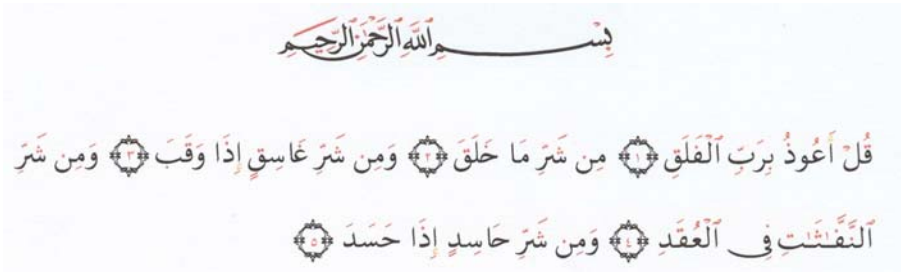 بِسْمِ ٱللَّهِ ٱلرَّحْمَٰنِ ٱلرَّحِيمِ
قُلْ أَعُوذُ بِرَبِّ ٱلْفَلَقِ ﴿١﴾ مِن شَرِّ مَا خَلَقَ ﴿٢﴾ وَمِن شَرِّ غَاسِقٍ إِذَا وَقَبَ ﴿٣﴾ وَمِن شَرِّ
ٱلنَّفَّٰثَٰتِ فِى ٱلْعُقَدِ ﴿٤﴾ وَمِن شَرِّ حَاسِدٍ إِذَا حَسَدَ ﴿٥﴾